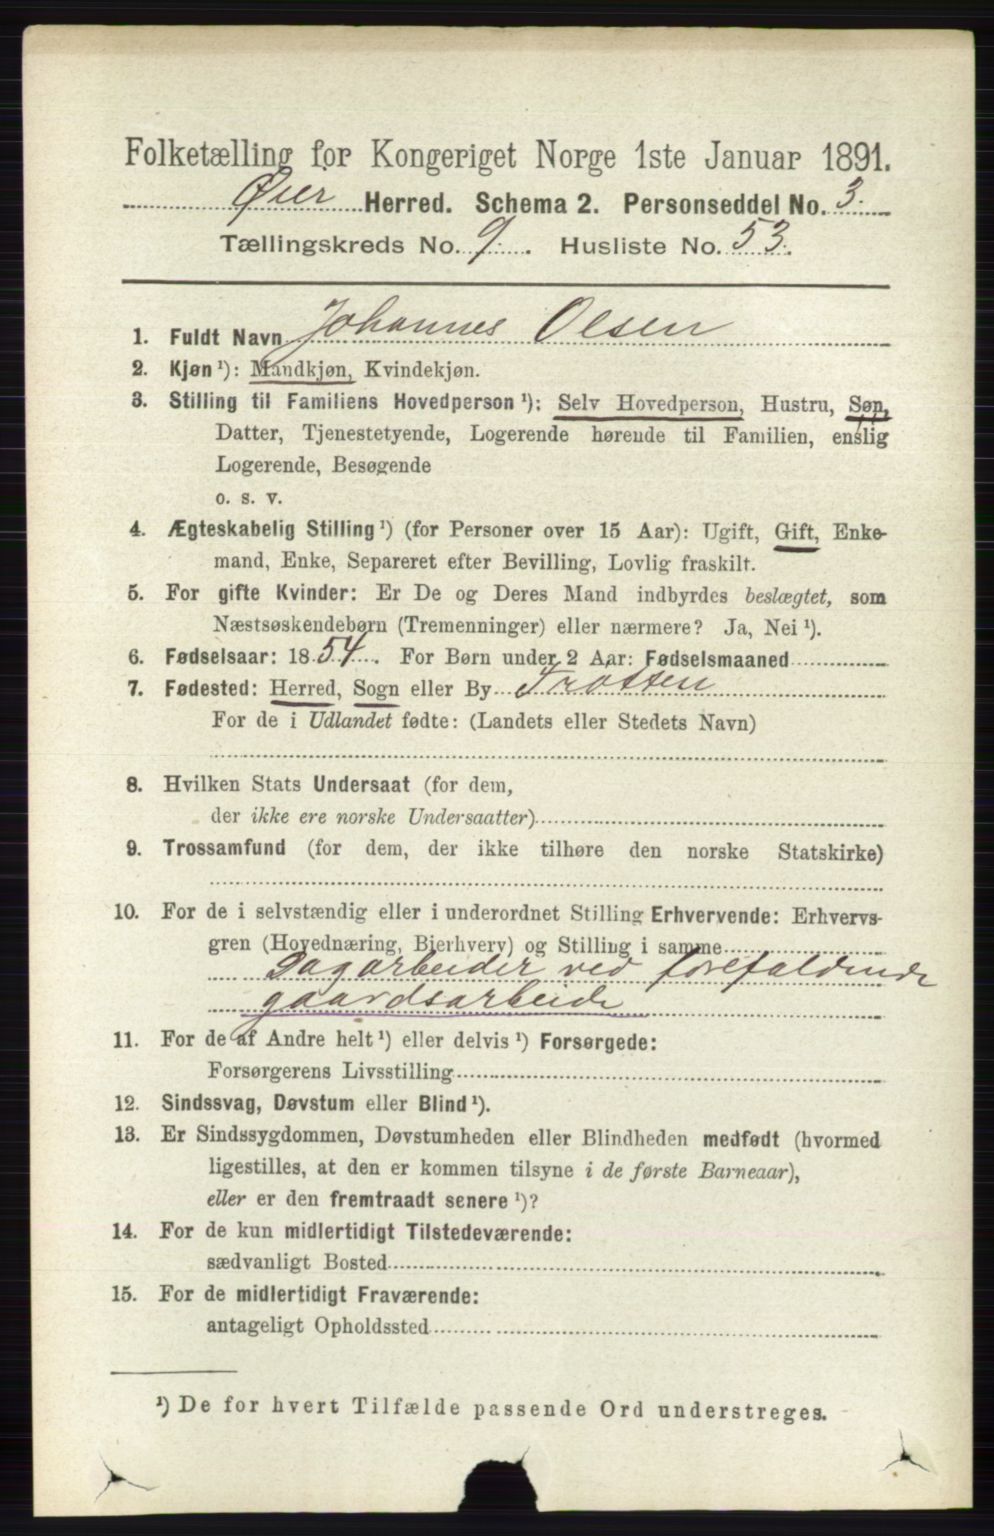 Folketælling for Kongeriget Norge 1ste Januar 1891.
Øier Herred. Schema 2. Personseddel No. 3.
Tællingskreds No. 9. Husliste No. 53.
1. Fuldt Navn Johannes Olsen
2. Kjøn ¹): Mandkjøn, Kvindekjøn.
3. Stilling til Familiens Hovedperson ¹): Selv Hovedperson, Hustru, Søn,
Datter, Tjenestetyende, Logerende hørende til Familien, enslig
Logerende, Besøgende
o. s. v.
4. Ægteskabelig Stilling ¹) (for Personer over 15 Aar): Ugift, Gift, Enke-
mand, Enke, Separeret efter Bevilling, Lovlig fraskilt.
5. For gifte Kvinder: Er De og Deres Mand indbyrdes beslægtet, som
Næstsøskendebørn (Tremenninger) eller nærmere? Ja, Nei ¹).
6. Fødselsaar: 1854. For Børn under 2 Aar: Fødselsmaaned
7. Fødested: Herred, Sogn eller By Trotten
For de i Udlandet fødte: (Landets eller Stedets Navn)
8. Hvilken Stats Undersaat (for dem,
der ikke ere norske Undersaatter)
9. Trossamfund (for dem, der ikke tilhøre den norske Statskirke)
10. For de i selvstændig eller i underordnet Stilling Erhvervende: Erhvervs-
gren (Hovednæring, Bierhverv) og Stilling i samme
Dagarbeider ved forefaldende
gaardsarbeide
11. For de af Andre helt ¹) eller delvis ¹) Forsørgede:
Forsørgerens Livsstilling
12. Sindssvag, Døvstum eller Blind ¹).
13. Er Sindssygdommen, Døvstumheden eller Blindheden medfødt (hvormed
ligestilles, at den er kommen tilsyne i de første Barneaar),
eller er den fremtraadt senere ¹)?
14. For de kun midlertidigt Tilstedeværende:
sædvanligt Bosted
15. For de midlertidigt Fraværende:
antageligt Opholdssted
¹) De for hvert Tilfælde passende Ord understreges.